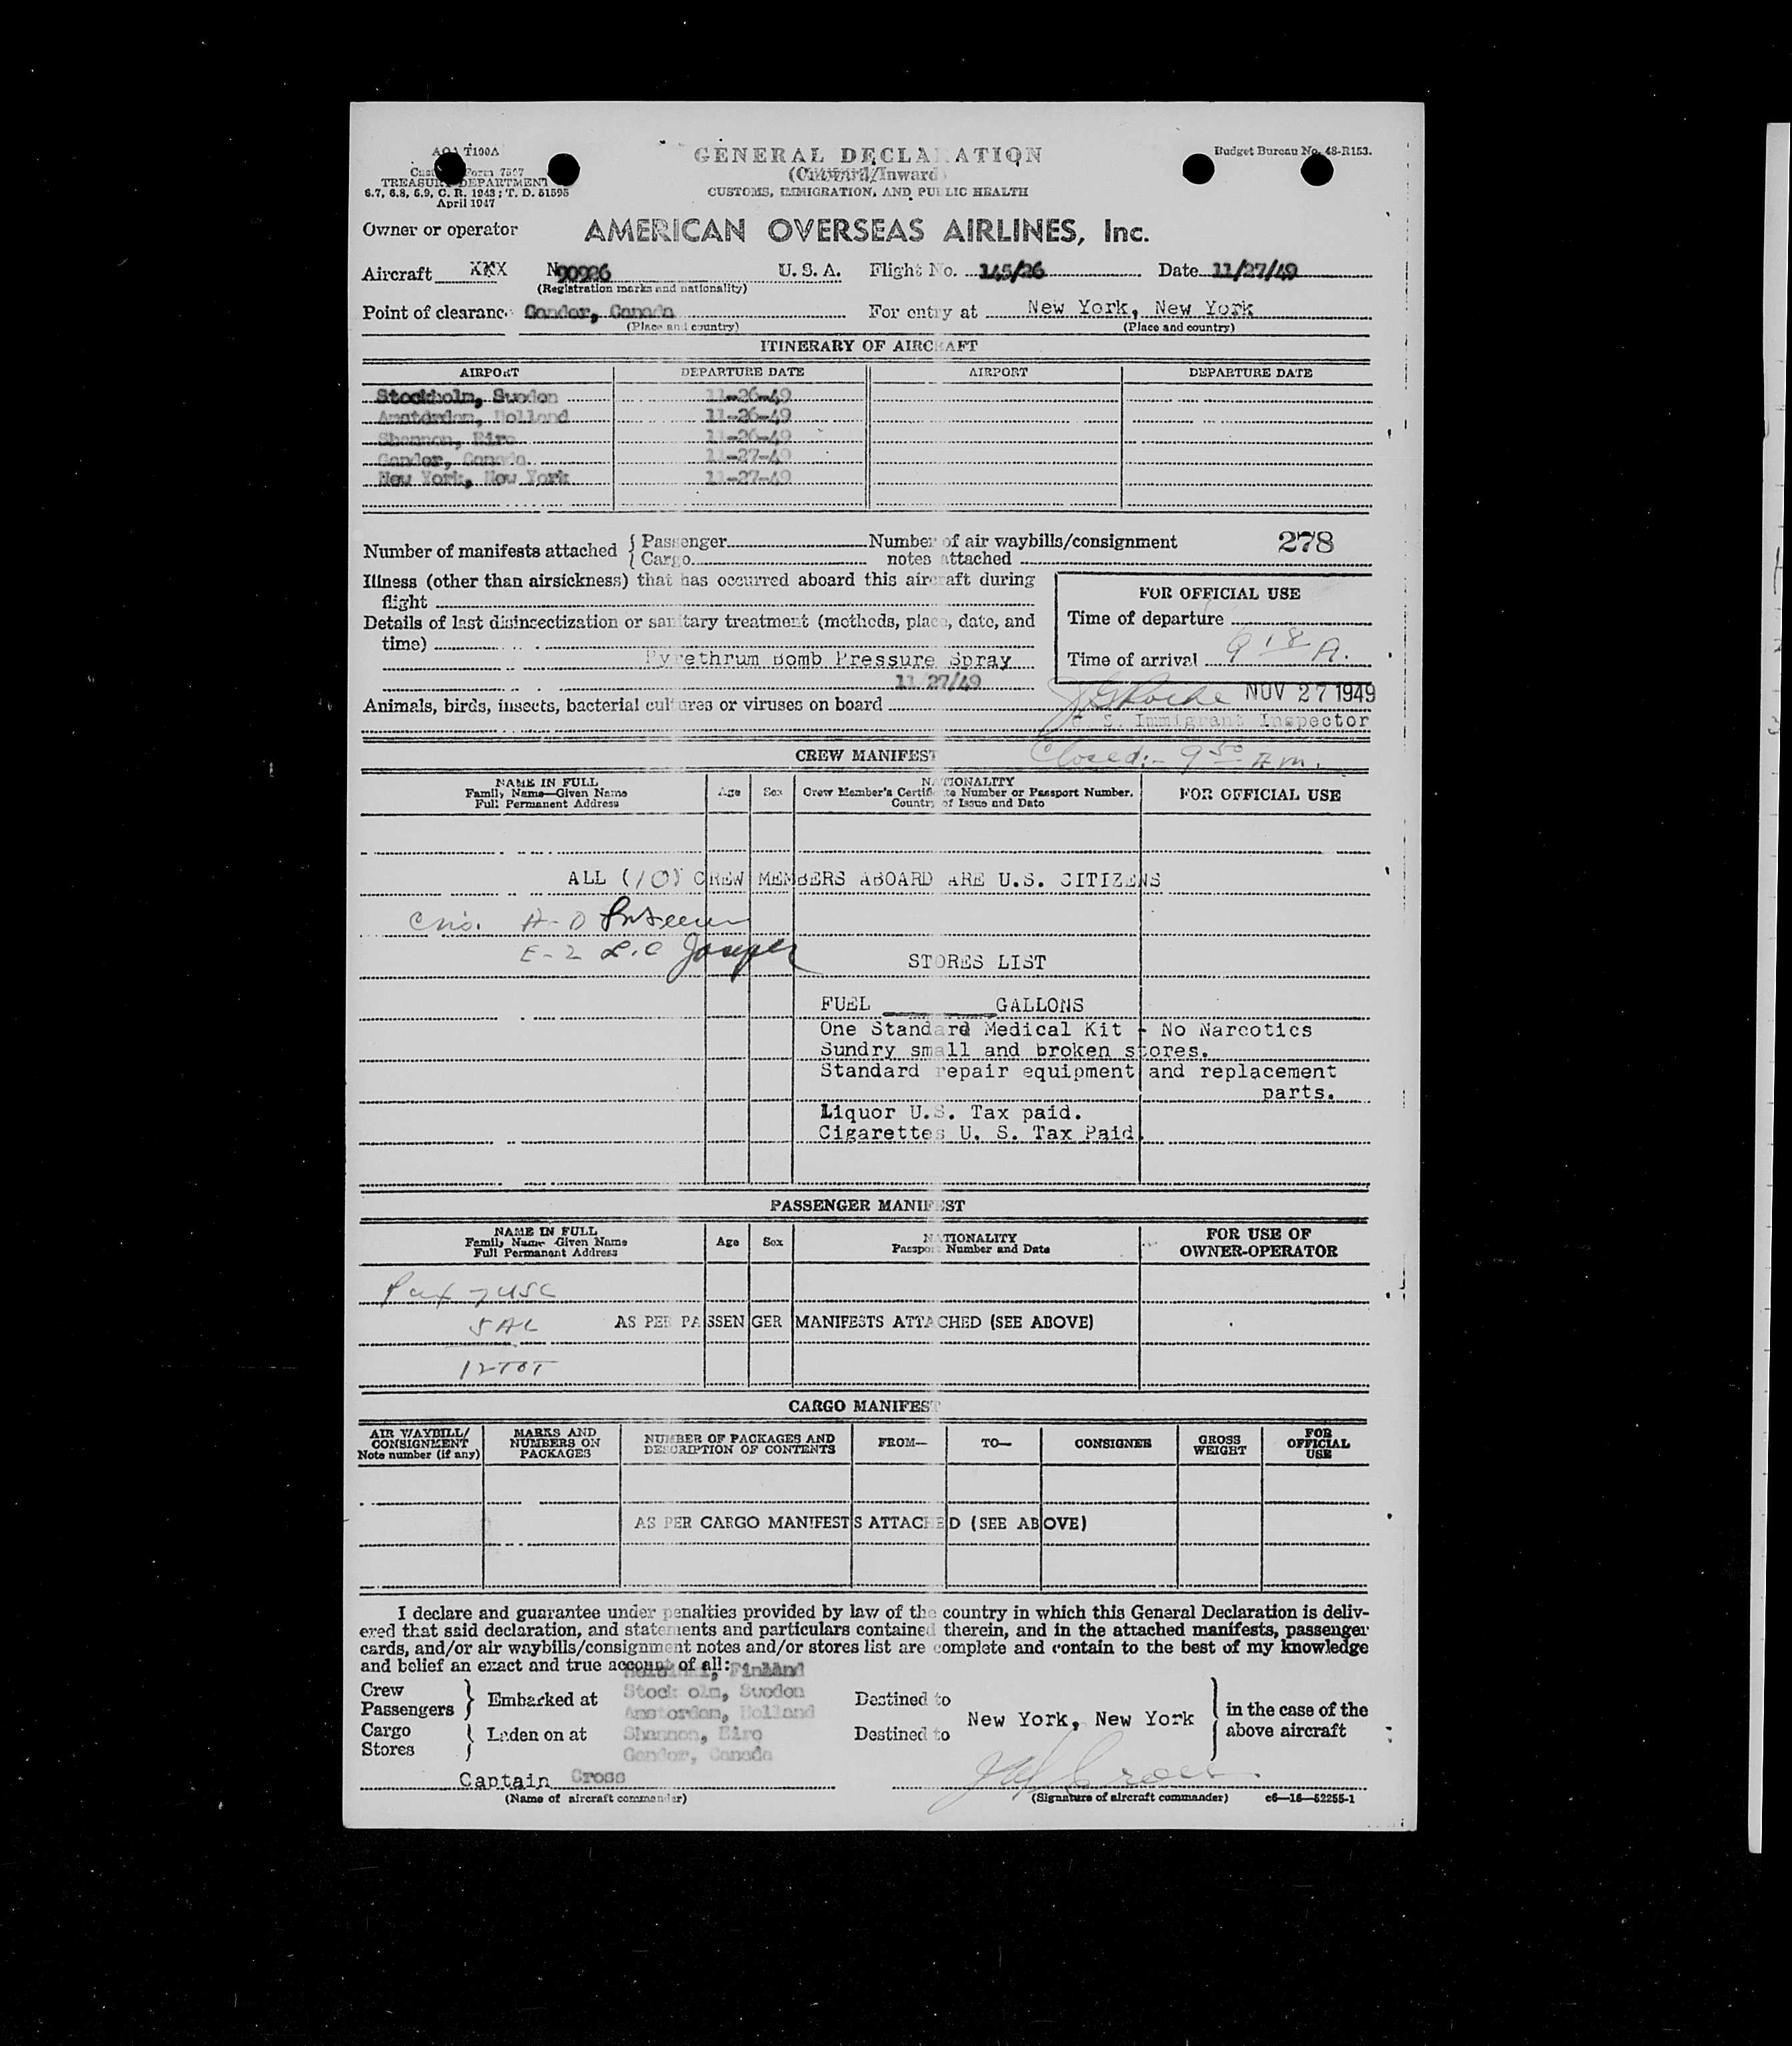 AOA T100A
Customs Form 7507
TREASURY DEPARTMENT
6.7, 6.8, 6.9, C. R. 1943; T. D. 51595
April 1947
GENERAL DECLARATION
(Outward/Inward)
CUSTOMS, IMMIGRATION, AND PUBLIC HEALTH
Budget Bureau No. 48-R153.
Owner or operator AMERICAN OVERSEAS AIRLINES, Inc.
Aircraft XXX N90926 U. S. A. Flight No. 145/26 Date 11/27/49
(Registration marks and nationality)
Point of clearance Gander, Canada For entry at New York, New York
(Place and country) (Place and country)
ITINERARY OF AIRCRAFT
AIRPORT DEPARTURE DATE AIRPORT DEPARTURE DATE
Stockholm, Sweden 11-26-49
Amsterdam, Holland 11-26-49
Shannon, Eire 11-26-49
Gander, Canada 11-27-49
New York, New York 11-27-49
Number of manifests attached { Passenger Number of air waybills/consignment 278
{ Cargo notes attached
Illness (other than airsickness) that has occurred aboard this aircraft during
flight
FOR OFFICIAL USE
Details of last disinsectization or sanitary treatment (methods, place, date, and
time)
Time of departure
Pyrethrum Bomb Pressure Spray
Time of arrival 9 18 A.
11/27/49
NOV 27 1949
Animals, birds, insects, bacterial cultures or viruses on board
U. S. Immigrant Inspector
Closed:- 9 50 A.m.
CREW MANIFEST
NAME IN FULL Age Sex NATIONALITY FOR OFFICIAL USE
Family Name—Given Name Crew Member's Certificate Number or Passport Number,
Full Permanent Address Country of Issue and Date
ALL (10) CREW MEMBERS ABOARD ARE U.S. CITIZENS
A-0
E-2 L.C
STORES LIST
FUEL GALLONS
One Standard Medical Kit - No Narcotics
Sundry small and broken stores.
Standard repair equipment and replacement
parts.
Liquor U.S. Tax paid.
Cigarettes U. S. Tax Paid.
PASSENGER MANIFEST
NAME IN FULL Age Sex NATIONALITY FOR USE OF
Family Name—Given Name Passport Number and Date OWNER-OPERATOR
Full Permanent Address
Pax 7 USC
5 AL AS PER PASSENGER MANIFESTS ATTACHED (SEE ABOVE)
12 TOT
CARGO MANIFEST
AIR WAYBILL/ MARKS AND NUMBER OF PACKAGES AND FROM— TO— CONSIGNEE GROSS FOR
CONSIGNMENT NUMBERS ON DESCRIPTION OF CONTENTS WEIGHT OFFICIAL
Note number (if any) PACKAGES USE
AS PER CARGO MANIFESTS ATTACHED (SEE ABOVE)
I declare and guarantee under penalties provided by law of the country in which this General Declaration is deliv-
ered that said declaration, and statements and particulars contained therein, and in the attached manifests, passenger
cards, and/or air waybills/consignment notes and/or stores list are complete and contain to the best of my knowledge
and belief an exact and true account of all:
Helsinki, Finland
Crew Stockholm, Sweden
Passengers } Embarked at Amsterdam, Holland Destined to New York, New York } in the case of the
Cargo Laden on at Shannon, Eire Destined to above aircraft
Stores Gander, Canada
Captain Cross
(Name of aircraft commander) (Signature of aircraft commander) c6—16—52255-1